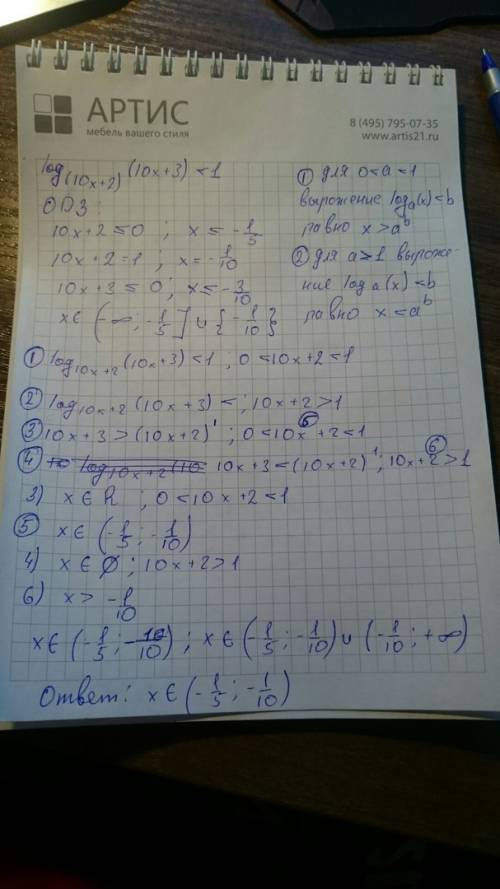 АРТИС
мебель вашего стиля
8 (495) 795-07-35
www.artis21.ru
log₍₁₀ₓ₊₂₎(10x+3)<1
ОДЗ
10x+2≤0; x≤-1/5
10x+2=1; x=-1/10
10x+3≤0; x≤-3/10
x∈(-∞;-1/5]∪{-1/10}
① для 0<a<1
выражение logₐ(x)<b
равно x>aᵇ
② для a>1 выраже-
ние logₐ(x)<b
равно x<aᵇ
① log₁₀ₓ₊₂(10x+3)<1; 0<10x+2<1
② log₁₀ₓ₊₂(10x+3)<; 10x+2>1
③ 10x+3>(10x+2)¹; 0<10x⑤+2<1
④ 10x+3<(10x+2)¹; 10x+2>1 ⑥
3) x∈R; 0<10x+2<1
⑤ x∈(-1/5;-1/10)
4) x∈∅; 10x+2>1
6) x>-1/10
x∈(-1/5;-1/10); x∈(-1/5;-1/10)∪(-1/10;+∞)
Ответ: x∈(-1/5;-1/10)